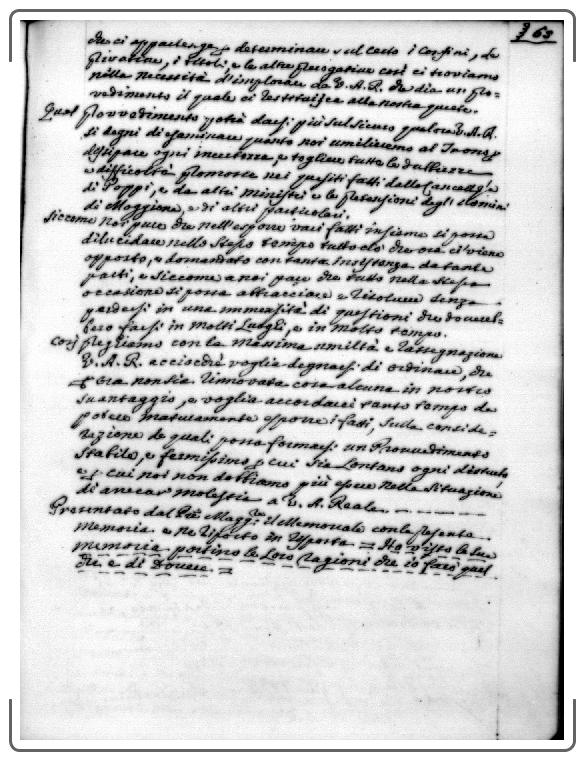 363
che ci appartenga determinare sul certo i Confini, le
privative, i titoli, e le altre prerogative così ci troviamo
nella necessità d'implorare da V. A. R. che dia un pro-
vedimento il quale ci restituisca alla nostra quiete.
Qual provvedimento potrà darsi più sul sicuro qualora V. A. R.
si degni di esaminare quanto noi umilieremo al Trono p
dissipare ogni incertezza, e togliere tutte le dubbiezze
e difficoltà promosse nei quesiti fatti dalla Cancell.a
di Poppi, e da altri ministri e le pretensioni degl'Uomini
di Moggiona, e di altri particolari.
Siccome noi pare che nell'esporre vari fatti insieme si possa
dilucidare nello stesso tempo tutto ciò che ora ci viene
opposto, e domandato con tanta insistenza da tante
parti, e siccome a noi pare che tutto nella stessa
occasione si possa abbracciare e risolvere senza
perdersi in una immensità di questioni che dovreb-
bero farsi in molti Luoghi, e in molto tempo.
Così preghiamo con la massima umiltà e rassegnazione
V. A. R. acciocchè voglia degnarsi di ordinare, che
p ora non sia rinnovata cosa alcuna in nostro
svantaggio, e voglia accordarci tanto tempo da
potere maturamente esporre i fatti, sulla conside-
razione de quali possa formarsi un Provvedimento
stabile, e fermissimo p cui sia Lontano ogni disturbo,
e p cui noi non dobbiamo più essere nella situazione
di arrecar molestie a V. A. Reale.
Presentato dal P.re Magg.re il Memoriale con la presente
memoria e ne riportò in risposta = Ho visto le sue
memorie portino le Loro ragioni che io farò quel
che è di Dovere =